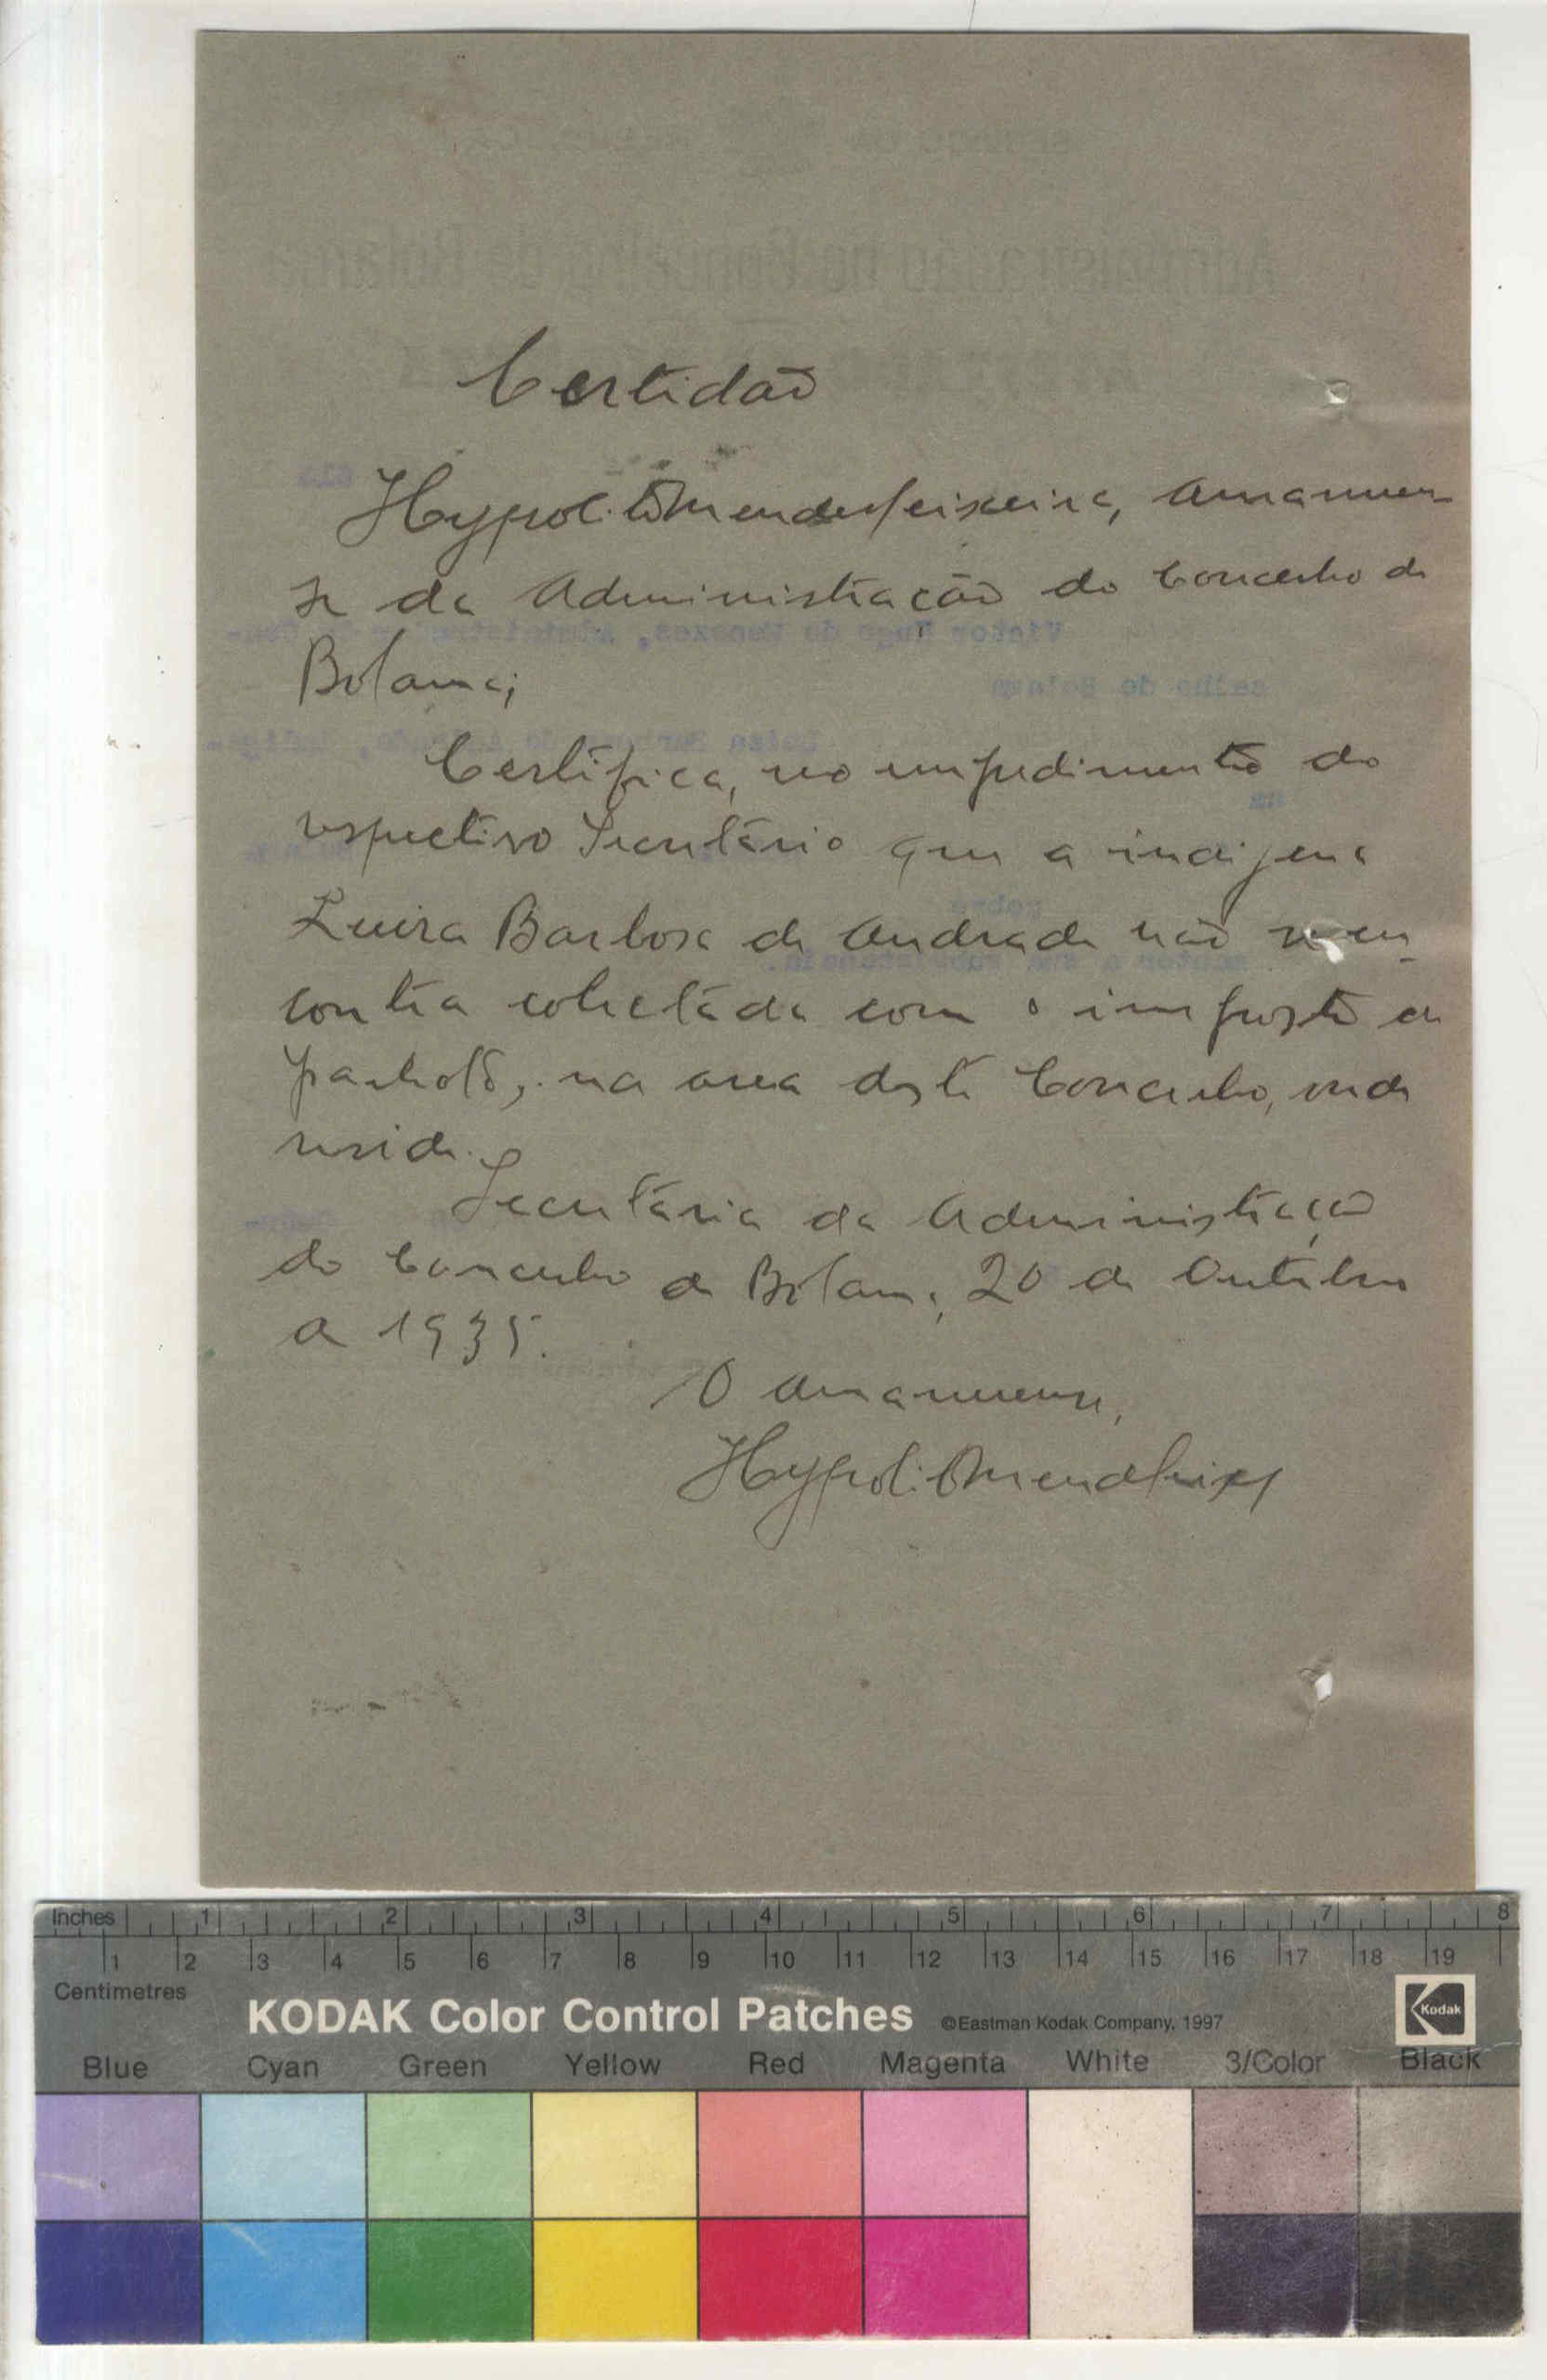 Certidão
Hypolito Mendes Teixeira, Amanuen-
se da Administração do Concelho de
Bolama;
Certifica, no impedimento do
respectivo Secretário que a indigena
Luiza Barbosa de Andrade não se en-
contra colectada com o imposto de
palhota, na area deste Concelho, onde
reside.
Secretária da Administração
do Concelho de Bolama, 20 de Outubro
de 1935.
O Amanuense,
Hypolito Mendes
Inches 1 2 3 4 5 6 7 8
1 2 3 4 5 6 7 8 9 10 11 12 13 14 15 16 17 18 19
Centimetres
KODAK Color Control Patches ©Eastman Kodak Company, 1997 Kodak
Blue Cyan Green Yellow Red Magenta White 3/Color Black